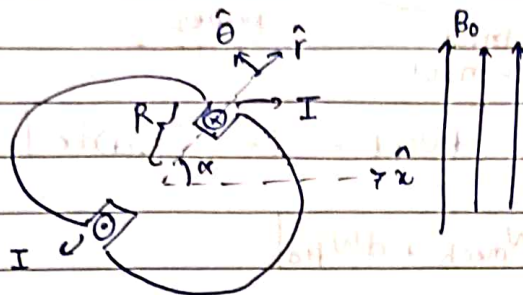 θ̂ r̂ B₀
R ⊗ I
α x̂
I ⊙